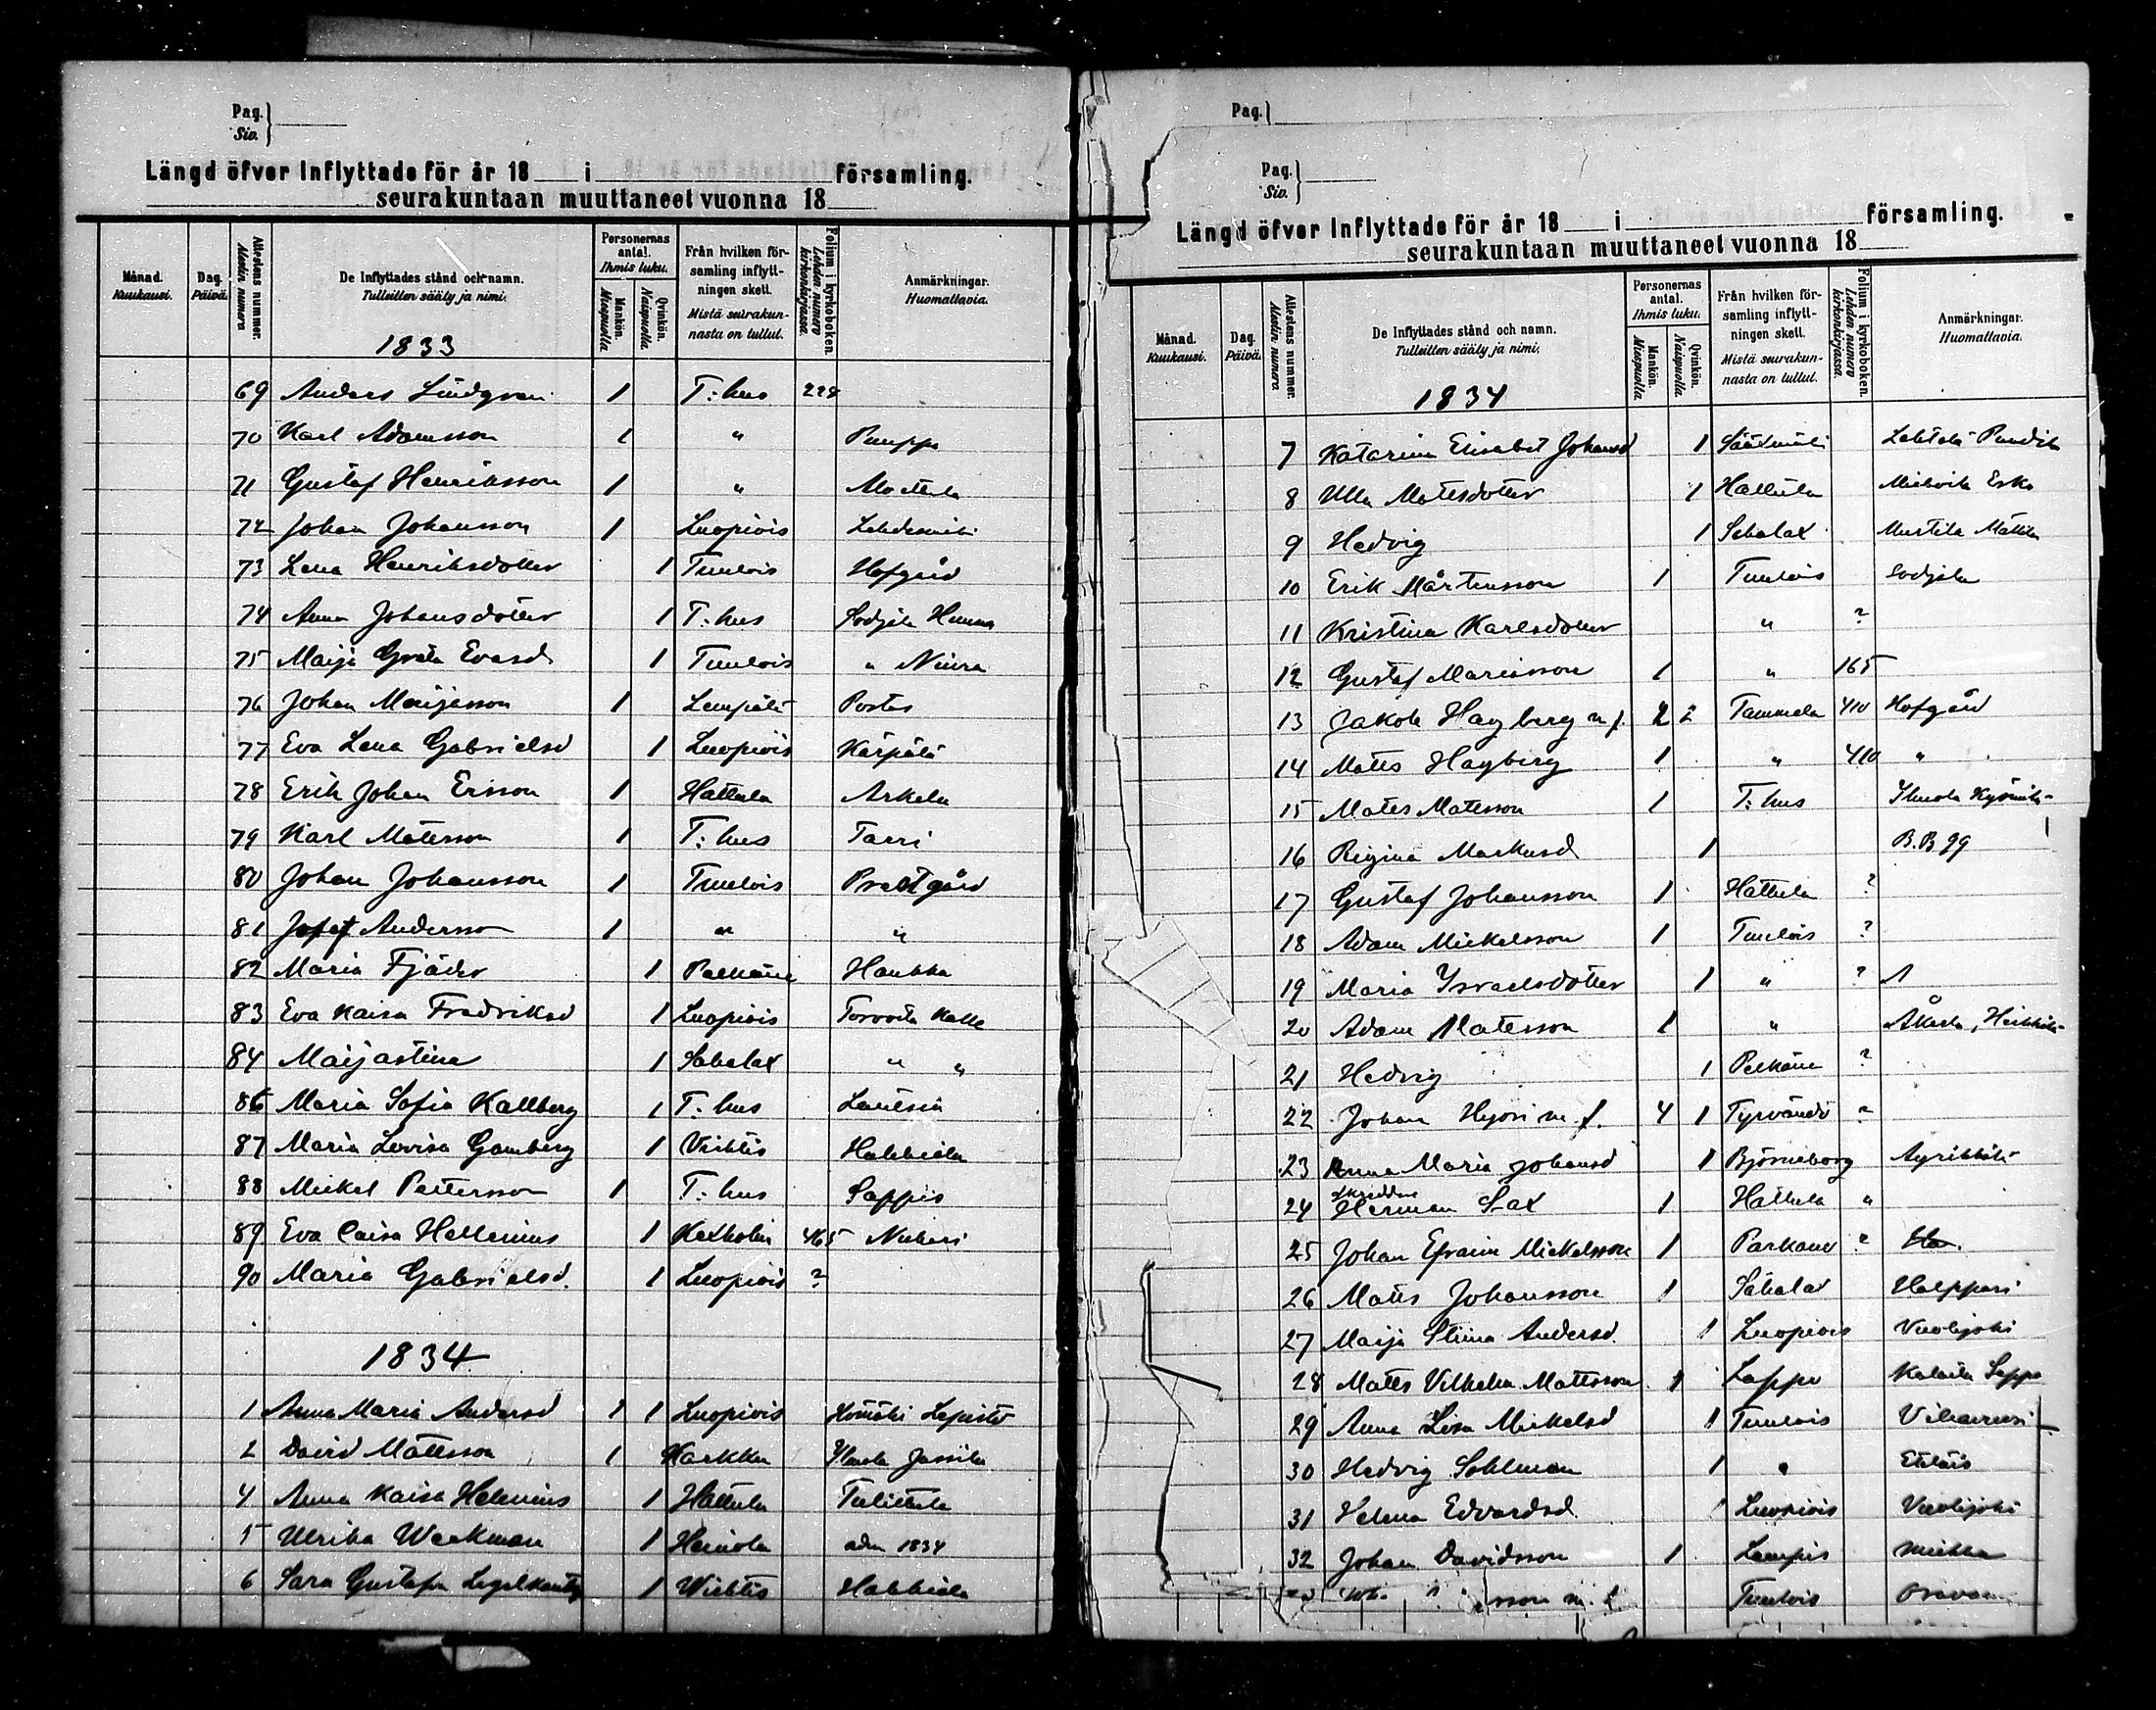 Pag.
Siv.
Längd öfver Inflyttade för år 18 i församling.
seurakuntaan muuttaneet vuonna 18
Månad. Kuukausi.
Dag. Päivä.
Attestens nummer. Atestin numero
De Inflyttades stånd och namn.
Tulleitten sääty ja nimi.
Personernas antal. Ihmis luku.
Mankön. Miespuolia
Qvinkön. Naispuolia.
Från hvilken församling inflyttningen skett.
Mistä seurakunnasta on tullut.
Folium i kyrkoboken. Lehden numero kirkonkirjassa.
Anmärkningar.
Huomattavia.
1833
69 Anders 1 T:hus 228
70 Karl Adamsson 1 " Pumppa
71 Gustaf Henriksson 1 " Mattila
72 Johan Johansson 1 Luopiois
73 Lena Henriksdotter 1 Tuulois Hofgård
74 Anna Johansdotter 1 T:hus Sodjala
75 Maija Greta Evasd 1 Tuulois "
76 Johan Maijasson 1 Lempälä
77 Eva Lena Gabrielsd 1 Luopiois Kärpälä
78 Erik Johan Ersson 1 Hattula Arkela
79 Karl Matsson 1 T:hus Tarri
80 Johan Johansson 1 Tuulois Prestgård
81 Josef Andersso 1 " "
82 Maria Fjäder 1 Pelkäne Haukka
83 Eva Kaisa Fredriksd 1 Luopiois Torvoila Kalle
84 Maijastina 1 Sahalax " "
86 Maria Sofia Kallberg 1 T:hus
87 Maria Lovisa Gamberg 1 Vichtis Hahkiala
88 Mickel Pettersson 1 T:hus Sappis
89 Eva Caisa Hellenius 1 Kexholm 465
90 Maria Gabrielsd. 1 Luopiois ?
1834
1 Anna Maria Andersd 1 1 Luopiois
2 David Mattsson 1 Karkku Jussila
4 Anna Kaisa Helenius 1 Hattula
5 Ulrika Weckman 1 Heinola adm 1834
6 Sara Gustafva 1 Wichtis Hahkiala
Pag.
Pag.
Siv.
Längd öfver Inflyttade för år 18 i församling.
seurakuntaan muuttaneet vuonna 18
Månad. Kuukausi.
Dag. Päivä.
Attestens nummer. Atestin numero
De Inflyttades stånd och namn.
Tulleitten sääty ja nimi.
Personernas antal. Ihmis luku.
Mankön. Miespuolia
Qvinkön. Naispuolia.
Från hvilken församling inflyttningen skett.
Mistä seurakunnasta on tullut.
Folium i kyrkoboken. Lehden numero kirkonkirjassa.
Anmärkningar.
Huomattavia.
1834
7 Katarina Elisabet Johansd 1 Sääxmäki
8 Ulla Matsdotter 1 Hattula Esko
9 Hedvig 1 Sahalax Mustila Mattila
10 Erik Mårtensson 1 Tuulois Sodjala
11 Kristina Karlsdotter " ?
12 Gustaf Mariasson 1 " 165
13 Jakob Hagberg m f. 2 2 Tammela 410 Hofgård
14 Matts Hagberg 1 " 410 "
15 Mats Matsson 1 T:hus
16 Regina Markusd 1 B.B 99
17 Gustaf Johansson 1 Hattula ?
18 Adam Mickelsson 1 Tuulois ?
19 Maria Israelsdotter 1 " ?
20 Adam Matsson 1 " Heikkilä
21 Hedvig 1 Pelkäne ?
22 Johan m. f. 4 1 Tyrvändö ?
23 Anna Maria Johansd 1 Björneborg
24 Herman Sax 1 Hattula "
25 Johan Efraim Mickelsson 1 Parkano ?
26 Matts Johansson 1 Sahalax
27 Maija Stiina Andersd. 1 Luopiois Vuolijoki
28 Matts Vilhelm Mattsson 1 Lappo
29 Anna Lisa Mickelsd 1 Tuulois
30 Hedvig Sohlman 1 "
31 Helena Edvardsd 1 Luopiois Vuolijoki
32 Johan Davidsson 1 Lampis
Tuulois